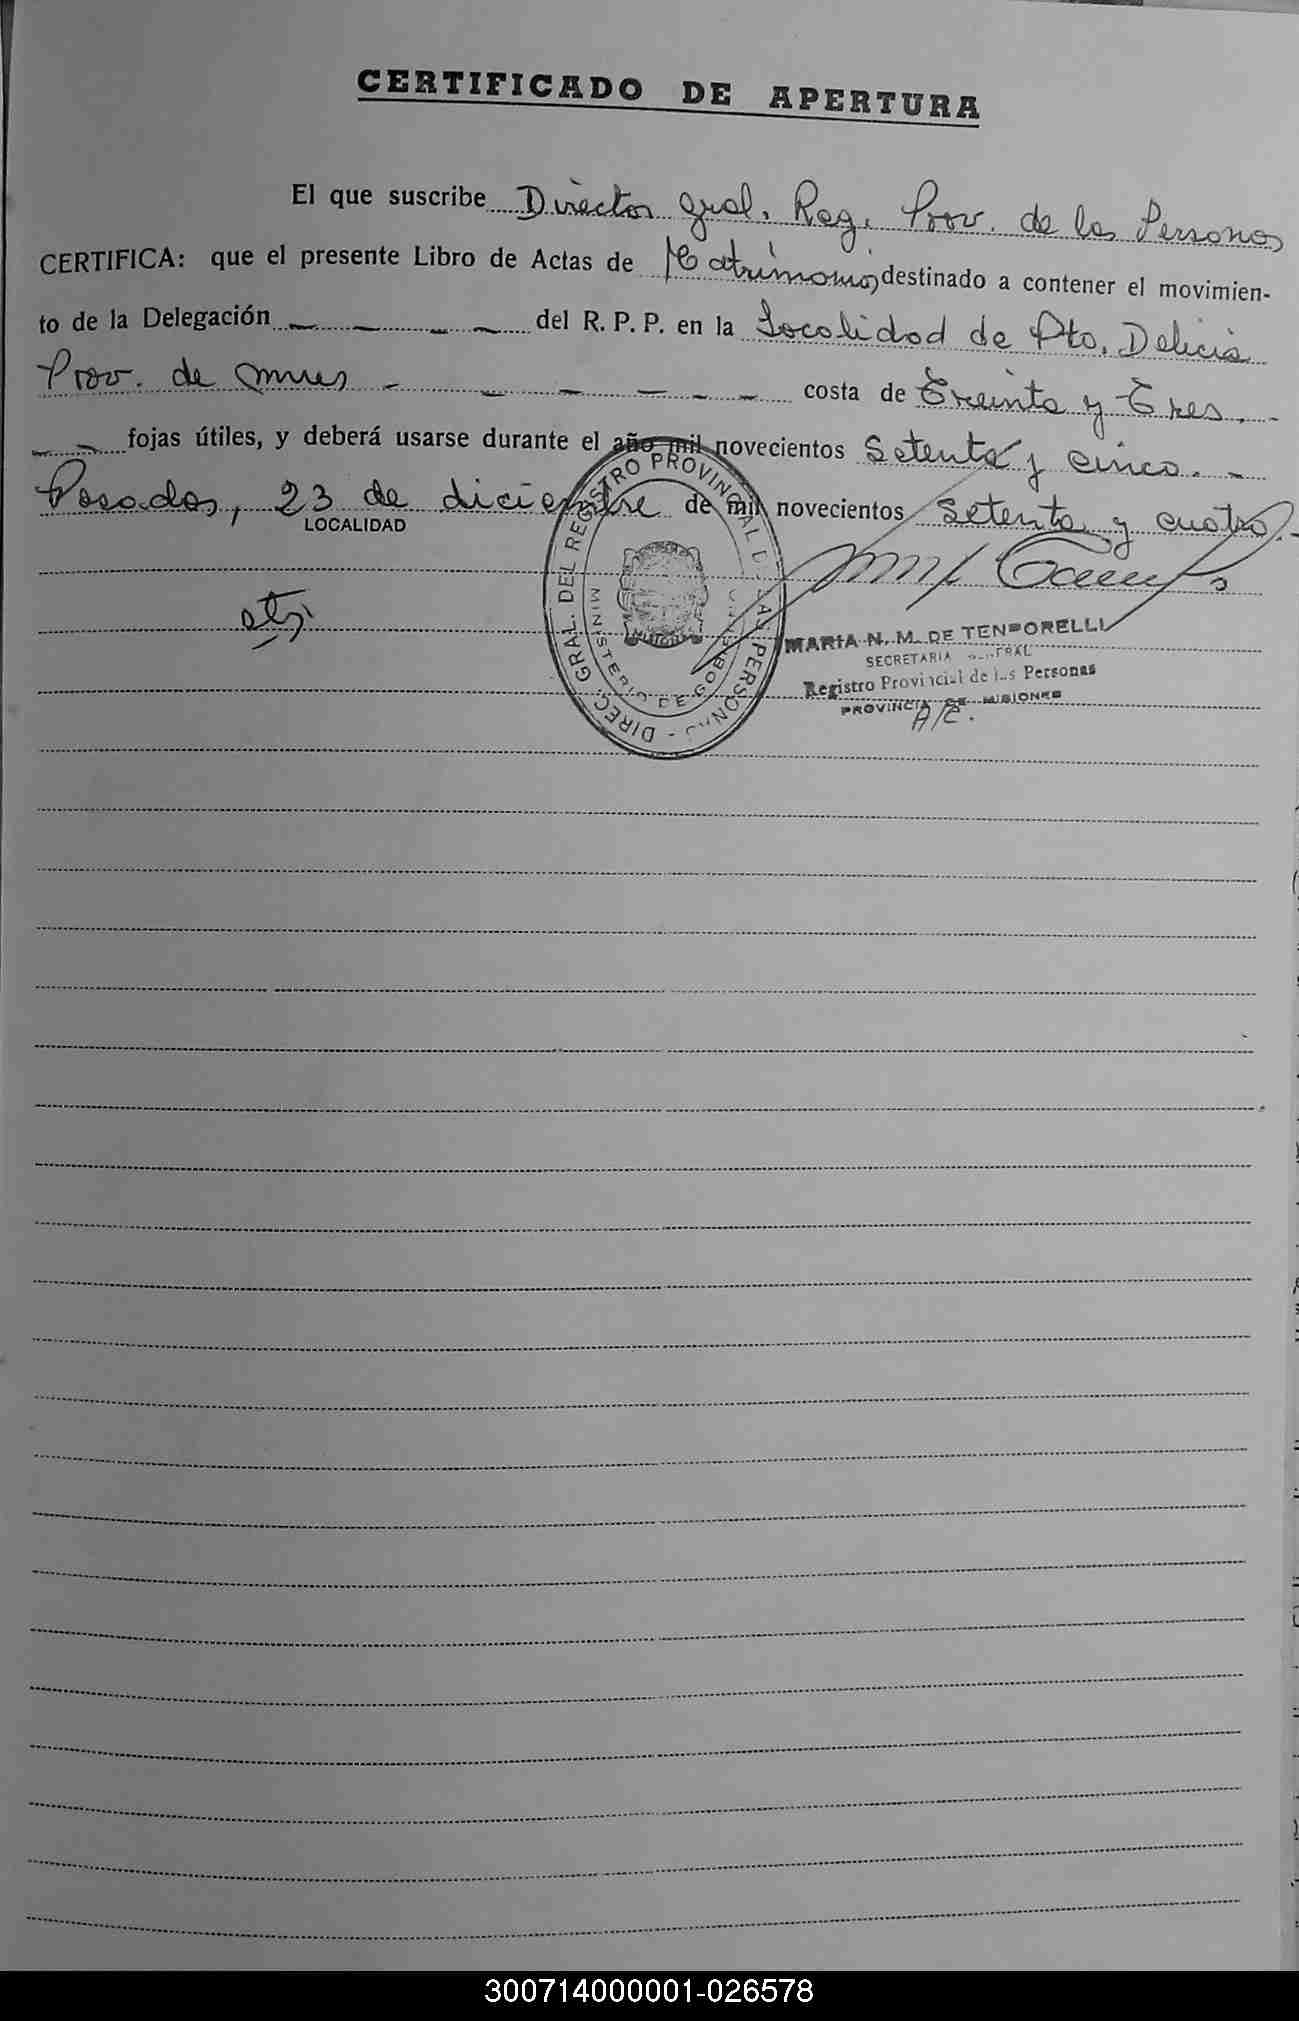 CERTIFICADO DE APERTURA
El que suscribe Director gral. Reg. Prov. de las Personas
CERTIFICA: que el presente Libro de Actas de Matrimonio, destinado a contener el movimien-
to de la Delegación _ _ _ _ del R. P. P. en la Localidad de Pto. Delicia
Prov. de mnes - _ _ _ _ _ costa de Treinta y Tres. -
_ _ fojas útiles, y deberá usarse durante el año mil novecientos Setenta y cinco. -
Posadas, 23 de diciembre de mil novecientos Setenta y cuatro.-
LOCALIDAD
DIREC. GRAL. DEL REGISTRO PROVINCIAL DE LAS PERSONAS -
MINISTERIO DE GOBIERNO
MARIA N. M. DE TEMPORELLI
SECRETARIA GENERAL
Registro Provincial de las Personas
PROVINCIA DE MISIONES
A/C.
300714000001-026578